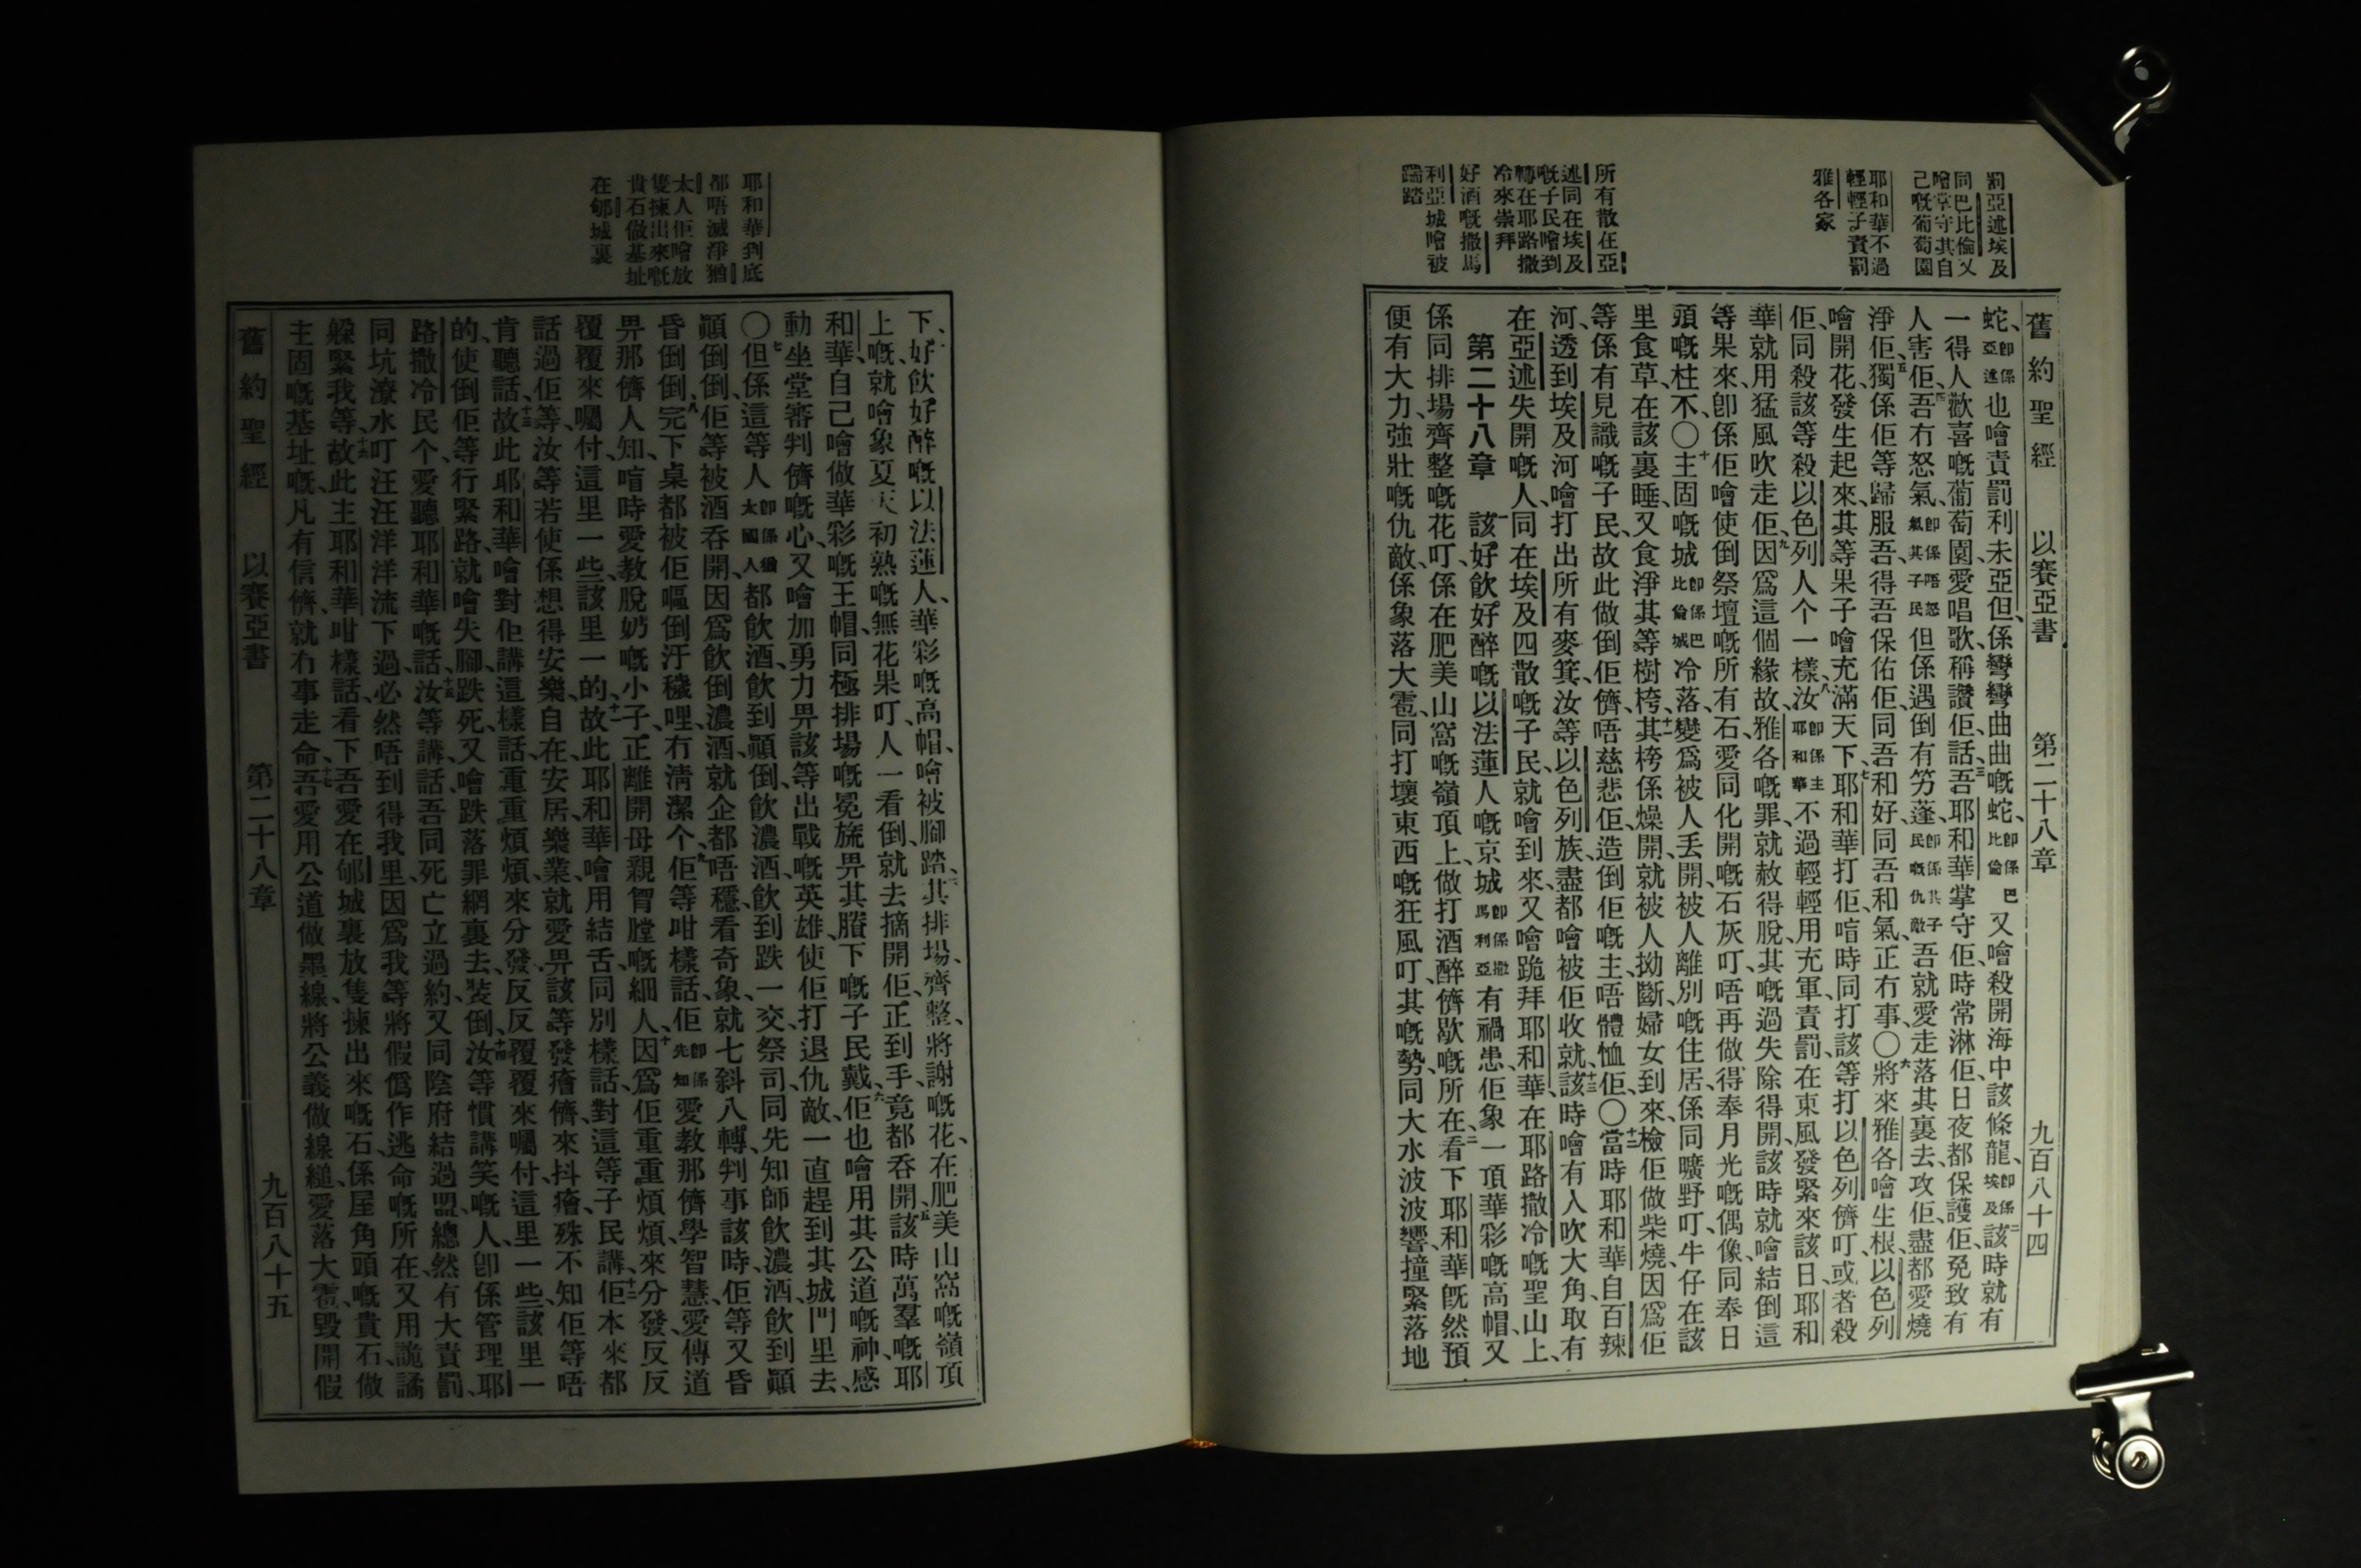 罰亞述埃及
同巴比倫又
噲掌守其自
己嘅葡萄園
耶和華不過
輕輕子責罰
雅各家
所有散在亞
述同在埃及
嘅子民噲到
轉在耶路撒
冷來崇拜
好酒嘅撒馬
利亞城噲被
踹踏
舊約聖經 以賽亞書 第二十八章 九百八十四
蛇、卽係亞述也噲責罰利未亞但係彎彎曲曲嘅蛇、卽係巴比倫又噲殺開海中該條龍、卽係埃及二該時就有
一得人歡喜嘅葡萄園、愛唱歌、稱讚佢、話、三吾耶和華掌守佢、時常淋佢、日夜都保護佢、免致有
人害佢、四吾冇怒氣、卽係唔怒氣其子民但係遇倒有竻蓬、卽係其子民嘅仇敵吾就愛走落其裏去、攻佢、盡都愛燒
淨佢、五獨係佢等歸服吾、得吾保佑佢、同吾和好、同吾和氣、正冇事〇六將來雅各噲生根、以色列
噲開花、發生起來、其等果子噲充滿天下、七耶和華打佢、喑時同打該等打以色列儕叮、或者殺
佢、同殺該等殺以色列人个一樣、八汝卽係主耶和華不過輕輕用充軍責罰、在東風發緊來該日、耶和
華就用猛風吹走佢、九因爲這個緣故、雅各嘅罪、就赦得脫、其嘅過失除得開、該時就噲結倒這
等果來、卽係佢噲使倒祭壇嘅所有石、愛同化開嘅石灰叮、唔再做得奉月光嘅偶像、同奉日
頭嘅柱不、〇十主固嘅城卽係巴比倫城冷落、變爲被人丢開、被人離別嘅住居、係同曠野叮、牛仔在該
里食草、在該裏睡、又食淨其等樹桍、十一其桍係燥開、就被人拗斷、婦女到來、檢佢做柴燒、因爲佢
等係有見識嘅子民、故此做倒佢儕、唔慈悲佢、造倒佢嘅主、唔體恤佢、〇十二當時耶和華自百辣
河、透到埃及河、噲打出所有麥箕、汝等以色列族、盡都噲被佢收就、十三該時噲有人吹大角、取有
在亞述失開嘅人、同在埃及四散嘅子民、就噲到來、又噲跪拜耶和華、在耶路撒冷嘅聖山上、
第二十八章 一該好飲好醉嘅以法蓮人嘅京城卽係撒馬利亞有禍患、佢象一頂華彩嘅高帽、又
係同排場齊整嘅花叮、係在肥美山窩嘅嶺頂上、做打酒醉儕歇嘅所在、二看下耶和華旣然預
便有大力、強壯嘅仇敵、係象落大雹、同打壞東西嘅狂風叮、其嘅勢、同大水波波響、撞緊落地
耶和華到底
都唔滅淨猶
太人佢噲放
隻揀出來嘅
貴石做基址
在郇城裏
下、三好飲好醉嘅以法蓮人、華彩嘅高帽、噲被腳踏、四其排場、齊整、將謝嘅花、在肥美山窩嘅嶺頂
上嘅、就噲象夏天初熟嘅無花果叮、人一看倒、就去摘開佢、正到手、竟都呑開、五該時萬羣嘅耶
和華、自己噲做華彩嘅王帽、同極排場嘅冕旒、畀其賸下嘅子民戴、六佢也噲用其公道嘅神、感
動坐堂審判儕嘅心、又噲加勇力畀該等出戰嘅英雄、使佢打退仇敵、一直趕到其城門里去、
〇七但係這等人卽係猶太國人都飲酒、飲到顚倒、飲濃酒、飲到跌一交、祭司同先知師、飲濃酒、飲到顚
顚倒倒、佢等被酒呑開、因爲飲倒濃酒、就企都唔穩、看奇象、就七斜八轉、判事該時、佢等又昏
昏倒倒、八完下桌都被佢嘔倒汙穢哩、冇清潔个、九佢等咁樣話、佢卽係先知愛教那儕學智慧、愛傳道
畀那儕人知、喑時愛教脫奶嘅小子、正離開母親胷膛嘅細人、十因爲佢重重煩煩、來分發、反反
覆覆來囑付、這里一些、該里一的、十一故此耶和華噲用結舌、同別樣話、對這等子民講、十二佢本來都
話過佢等、汝等若使係想得安樂、自在、安居樂業、就愛畀該等發癐儕、來抖癐、殊不知佢等唔
肯聽話、十三故此耶和華噲對佢講這樣話、重重煩煩、來分發、反反覆覆來囑付、這里一些、該里一
的、使倒佢等行緊路、就噲失腳、跌死、又噲跌落罪網裏去、裝倒、十四汝等慣講笑嘅人、卽係管理耶
路撒冷民个、愛聽耶和華嘅話、十五汝等講、話吾同死亡立過約、又同陰府結過盟、總然有大責罰、
同坑潦水叮、汪汪洋洋流下過、必然唔到得我里、因爲我等將假僞作逃命嘅所在、又用詭譎
躱緊我等、十六故此主耶和華咁樣話、看下、吾愛在郇城裏放隻揀出來嘅石、係屋角頭嘅貴石、做
主固嘅基址嘅、凡有信儕、就冇事走命、十七吾愛用公道做墨線、將公義做線縋、愛落大雹、毀開假
舊約聖經 以賽亞書 第二十八章 九百八十五